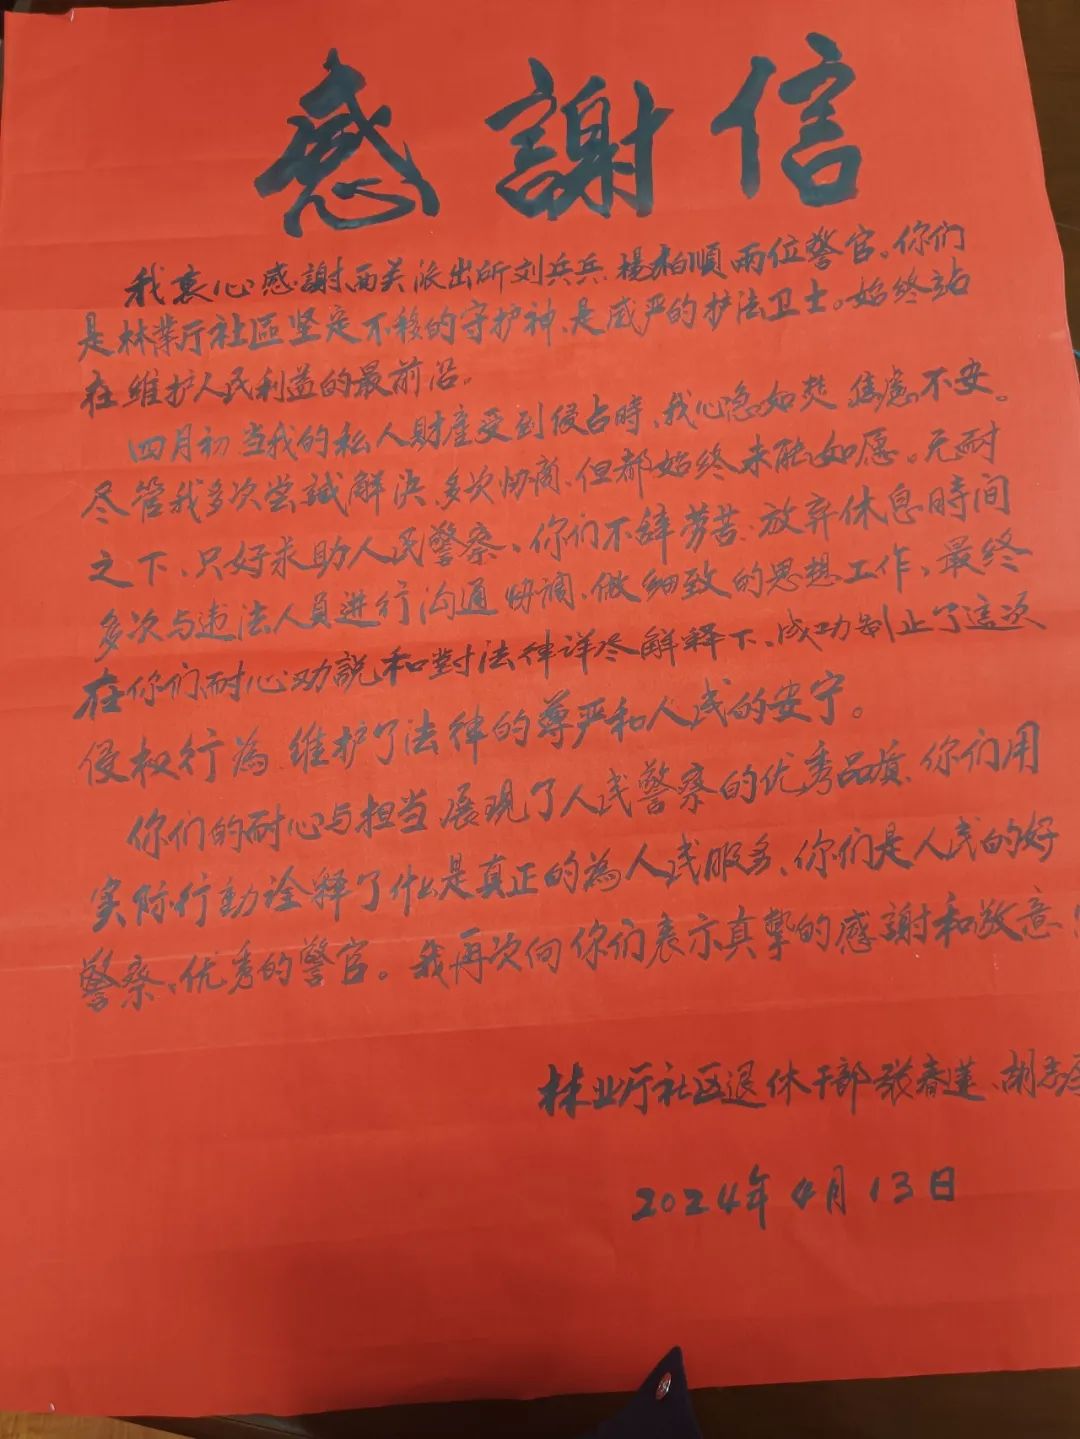 感謝信
我衷心感謝西关派出所刘兵兵、楊柏順兩位警官。你们
是林業厅社區坚定不移的守护神、是威严的护法卫士。始终站
在维护人民利益的最前沿。
四月初当我的私人財產受到侵占時、我心急如焚 焦慮不安。
尽管我多次尝試解決、多次协商、但都始终未能如愿。无耐
之下、只好求助人民警察、你们不辞劳苦、放弃休息時间
多次与违法人員进行沟通协調、做细致的思想工作、最终
在你们耐心劝説和對法律详尽解释下、成功制止了這次
侵权行為、维护了法律的尊严和人民的安宁。
你们的耐心与担当、展現了人民警察的优秀品质、你们用
实际行動诠释了什么是真正的為人民服务、你们是人民的好
警察、优秀的警官。我再次向你们表示真挚的感謝和敬意
林业厅社区退休干部张春莲、胡志
2024年4月13日